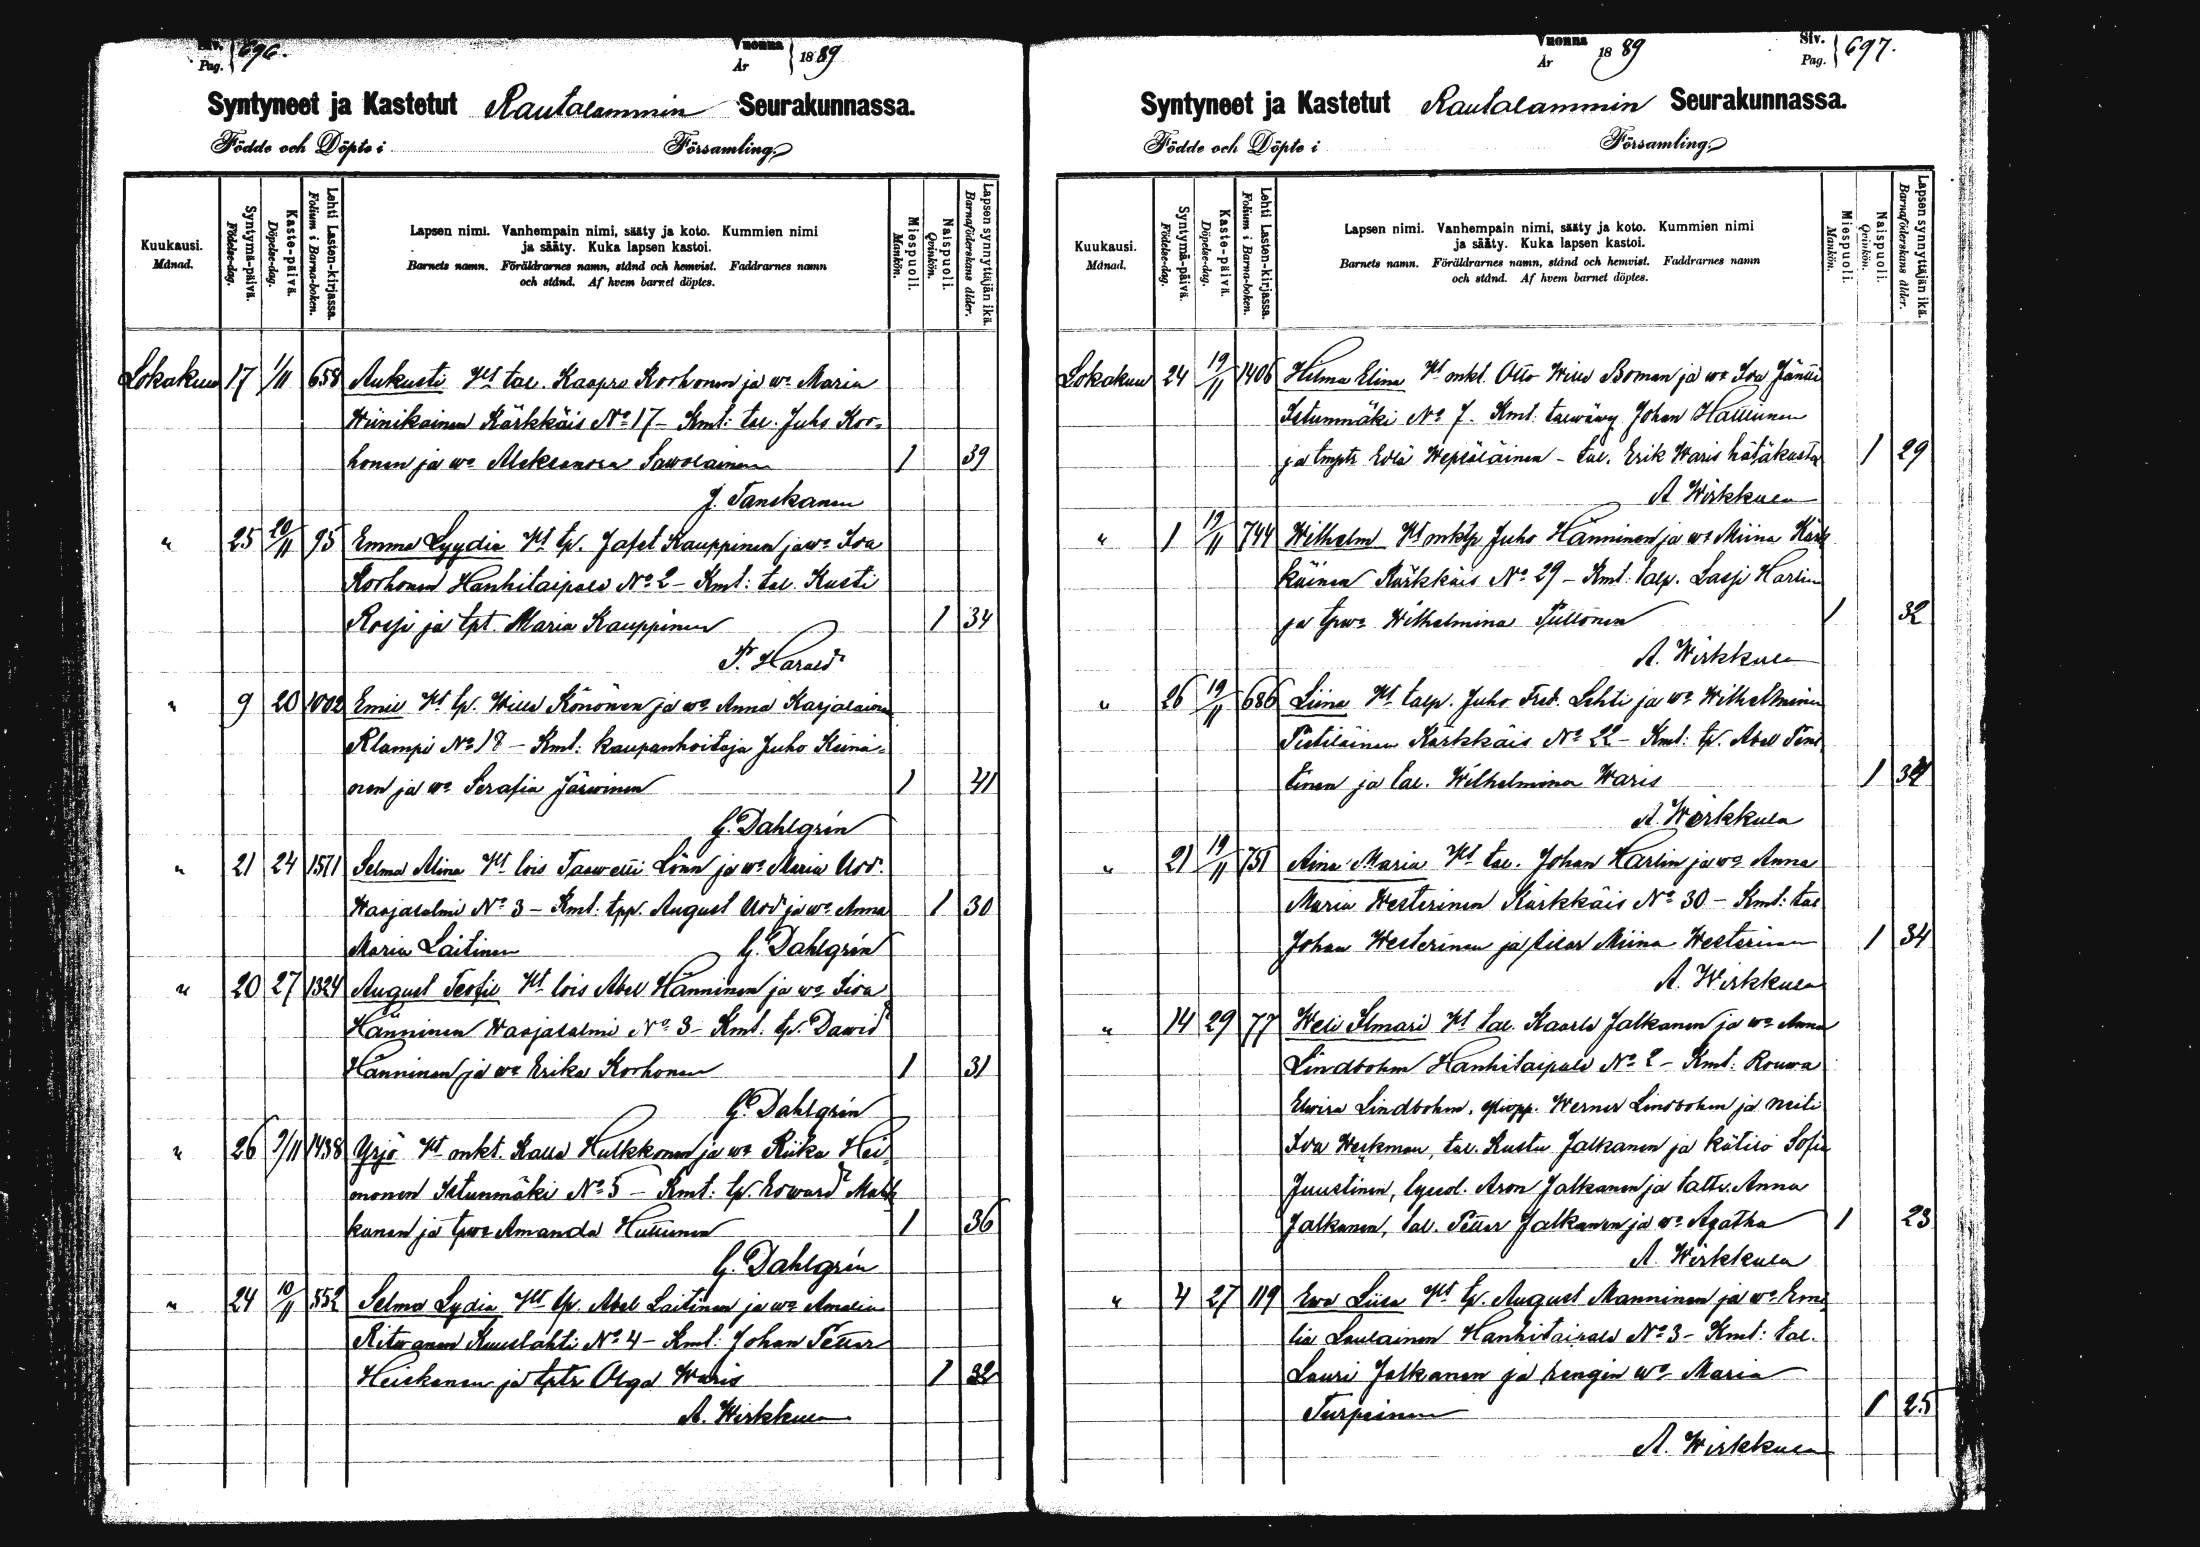 Siv. Pag. 696.
Vuonna År 1889
Syntyneet ja Kastetut Rautalammin Seurakunnassa.
Födde och Döpte i Församling.
Kuukausi. Månad.
Syntymä-päivä. Födelse-dag.
Kaste-päivä. Döpelse-dag.
Lehti Lasten-kirjassa. Folium i Barna-boken.
Lapsen nimi. Vanhempain nimi, sääty ja koto. Kummien nimi
ja sääty. Kuka lapsen kastoi.
Barnets namn. Föräldrarnes namn, stånd och hemvist. Faddrarnes namn
och stånd. Af hvem barnet döptes.
Miespuoli. Mankön.
Naispuoli. Qvinkön.
Lapsen synnyttäjän ikä. Barnaföderskans ålder.
Lokakuu 17 1/11 658 Aukusti Vt tal. Kaapro Korhonen ja wo Maria
Wiinikainen Kärkkäis No 17 – Kmt: tal. Juho Kor-
honen ja wo Aleksandra Sawolainen 1 39
J. Tanskanen
" 25 20/11 95 Emma Lyydia Vt tp. Jafet Kauppinen ja wo Iva
Korhonen Hanhitaipale No 2 – Kmt: tal. Kusti
Rossi ja tpt. Maria Kauppinen 1 34
P. Harald
" 9 20 1002 Emil Vt tp. Wille Könönen ja wo Anna Karjalainen
Rlampi No 18 – Kmt: kaupanhoitaja Juho Keinä-
nen ja wo Serafia Järwinen 1 41
G. Dahlgrén
" 21 24 1571 Selma Alina Vt lois Taawetti Lönn ja wo Maria Uod.
Waajasalmi No 3 – Kmt: tpp. August Uod ja wo Anna 1 30
Maria Laitinen G. Dahlgrén
" 20 27 1324 August Teofil Vt lois Abel Hänninen ja wo Iiva
Hänninen Waajasalmi No 3 – Kmt. tp. Dawid
Hänninen ja wo Erika Korhonen 1 31
G. Dahlgrén
" 26 9/11 1438 Yrjö Vt mkt. Kalle Hulkkonen ja wo Riika Hei-
monen Istunmäki No 5 – Kmt: tp. Edward Mat
kanen ja tpwo Amanda Huttunen 1 36
G. Dahlgrén
" 24 10/11 552 Selma Lydia Vt tp. Abel Laitinen ja wo Amalia
Ritwanen Kuuslahti No 4 – Kmt: Johan Petter
Heiskanen ja tptr Olga Waris 1 32
A. Wirkkula
Vuonna År 1889
Siv. Pag. 697.
Syntyneet ja Kastetut Rautalammin Seurakunnassa.
Födde och Döpte i Församling.
Kuukausi. Månad.
Syntymä-päivä. Födelse-dag.
Kaste-päivä. Döpelse-dag.
Lehti Lasten-kirjassa. Folium i Barna-boken.
Lapsen nimi. Vanhempain nimi, sääty ja koto. Kummien nimi
ja sääty. Kuka lapsen kastoi.
Barnets namn. Föräldrarnes namn, stånd och hemvist. Faddrarnes namn
och stånd. Af hvem barnet döptes.
Miespuoli. Mankön.
Naispuoli. Qvinkön.
Lapsen synnyttäjän ikä. Barnaföderskans ålder.
Lokakuu 24 19/11 1406 Hilma Elina Vt mkt. Otto Wille Boman ja wo Iva Jäntti
Istunmäki No 7. Kmt: talwäwy Johan Halttunen
ja tmptr Edla Wepsäläinen – tal. Erik Waris hätäkasta 1 29
A Wirkkula
" 1 19/11 744 Wilhelm Vt mktp Juho Hänninen ja wo Miina Kärk
käinen Kärkkäis No 29 – Kmt: talp. Lassi Harlin
ja tpwo Wilhelmina Pullonen 1 32
A. Wirkkula
" 26 19/11 686 Liina Vt talp. Juho Fred. Lehti ja wo Wilhelmina
Pietiläinen Kärkkäis No 22 – Kmt: tp. Abel Pent
tinen ja tal. Wilhelmina Waris 1 34
A. Wirkkula
" 21 19/11 751 Aina Maria Vt tal. Johan Harlin ja wo Anna
Maria Westerinen Kärkkäis No 30 – Kmt: tal
Johan Westerinen ja sisar Miina Westerinen 1 34
A. Wirkkula
" 14 29 77 Weli Ilmari Vt tal. Kaarle Jalkanen ja wo Anna
Lindbohm Hanhitaipale No 2 – Kmt: Rouwa
Elwira Lindbohm, yliopp. Werner Lindbohm ja neiti
Iva Weckman, tal. Kustu Jalkanen ja kätilö Sofia
Juustinen, lyseol. Aron Jalkanen ja taltr. Anna
Jalkanen, tal. Petter Jalkanen ja wo Agatha 1 23
A. Wirkkula
" 4 27 119 Ewa Liisa Vt tp. August Manninen ja wo Ema
lia Laulainen Hanhitaipale No 3 – Kmt: tal.
Lauri Jalkanen ja rengin wo Maria
Turpeinen 1 25
A. Wirkkula